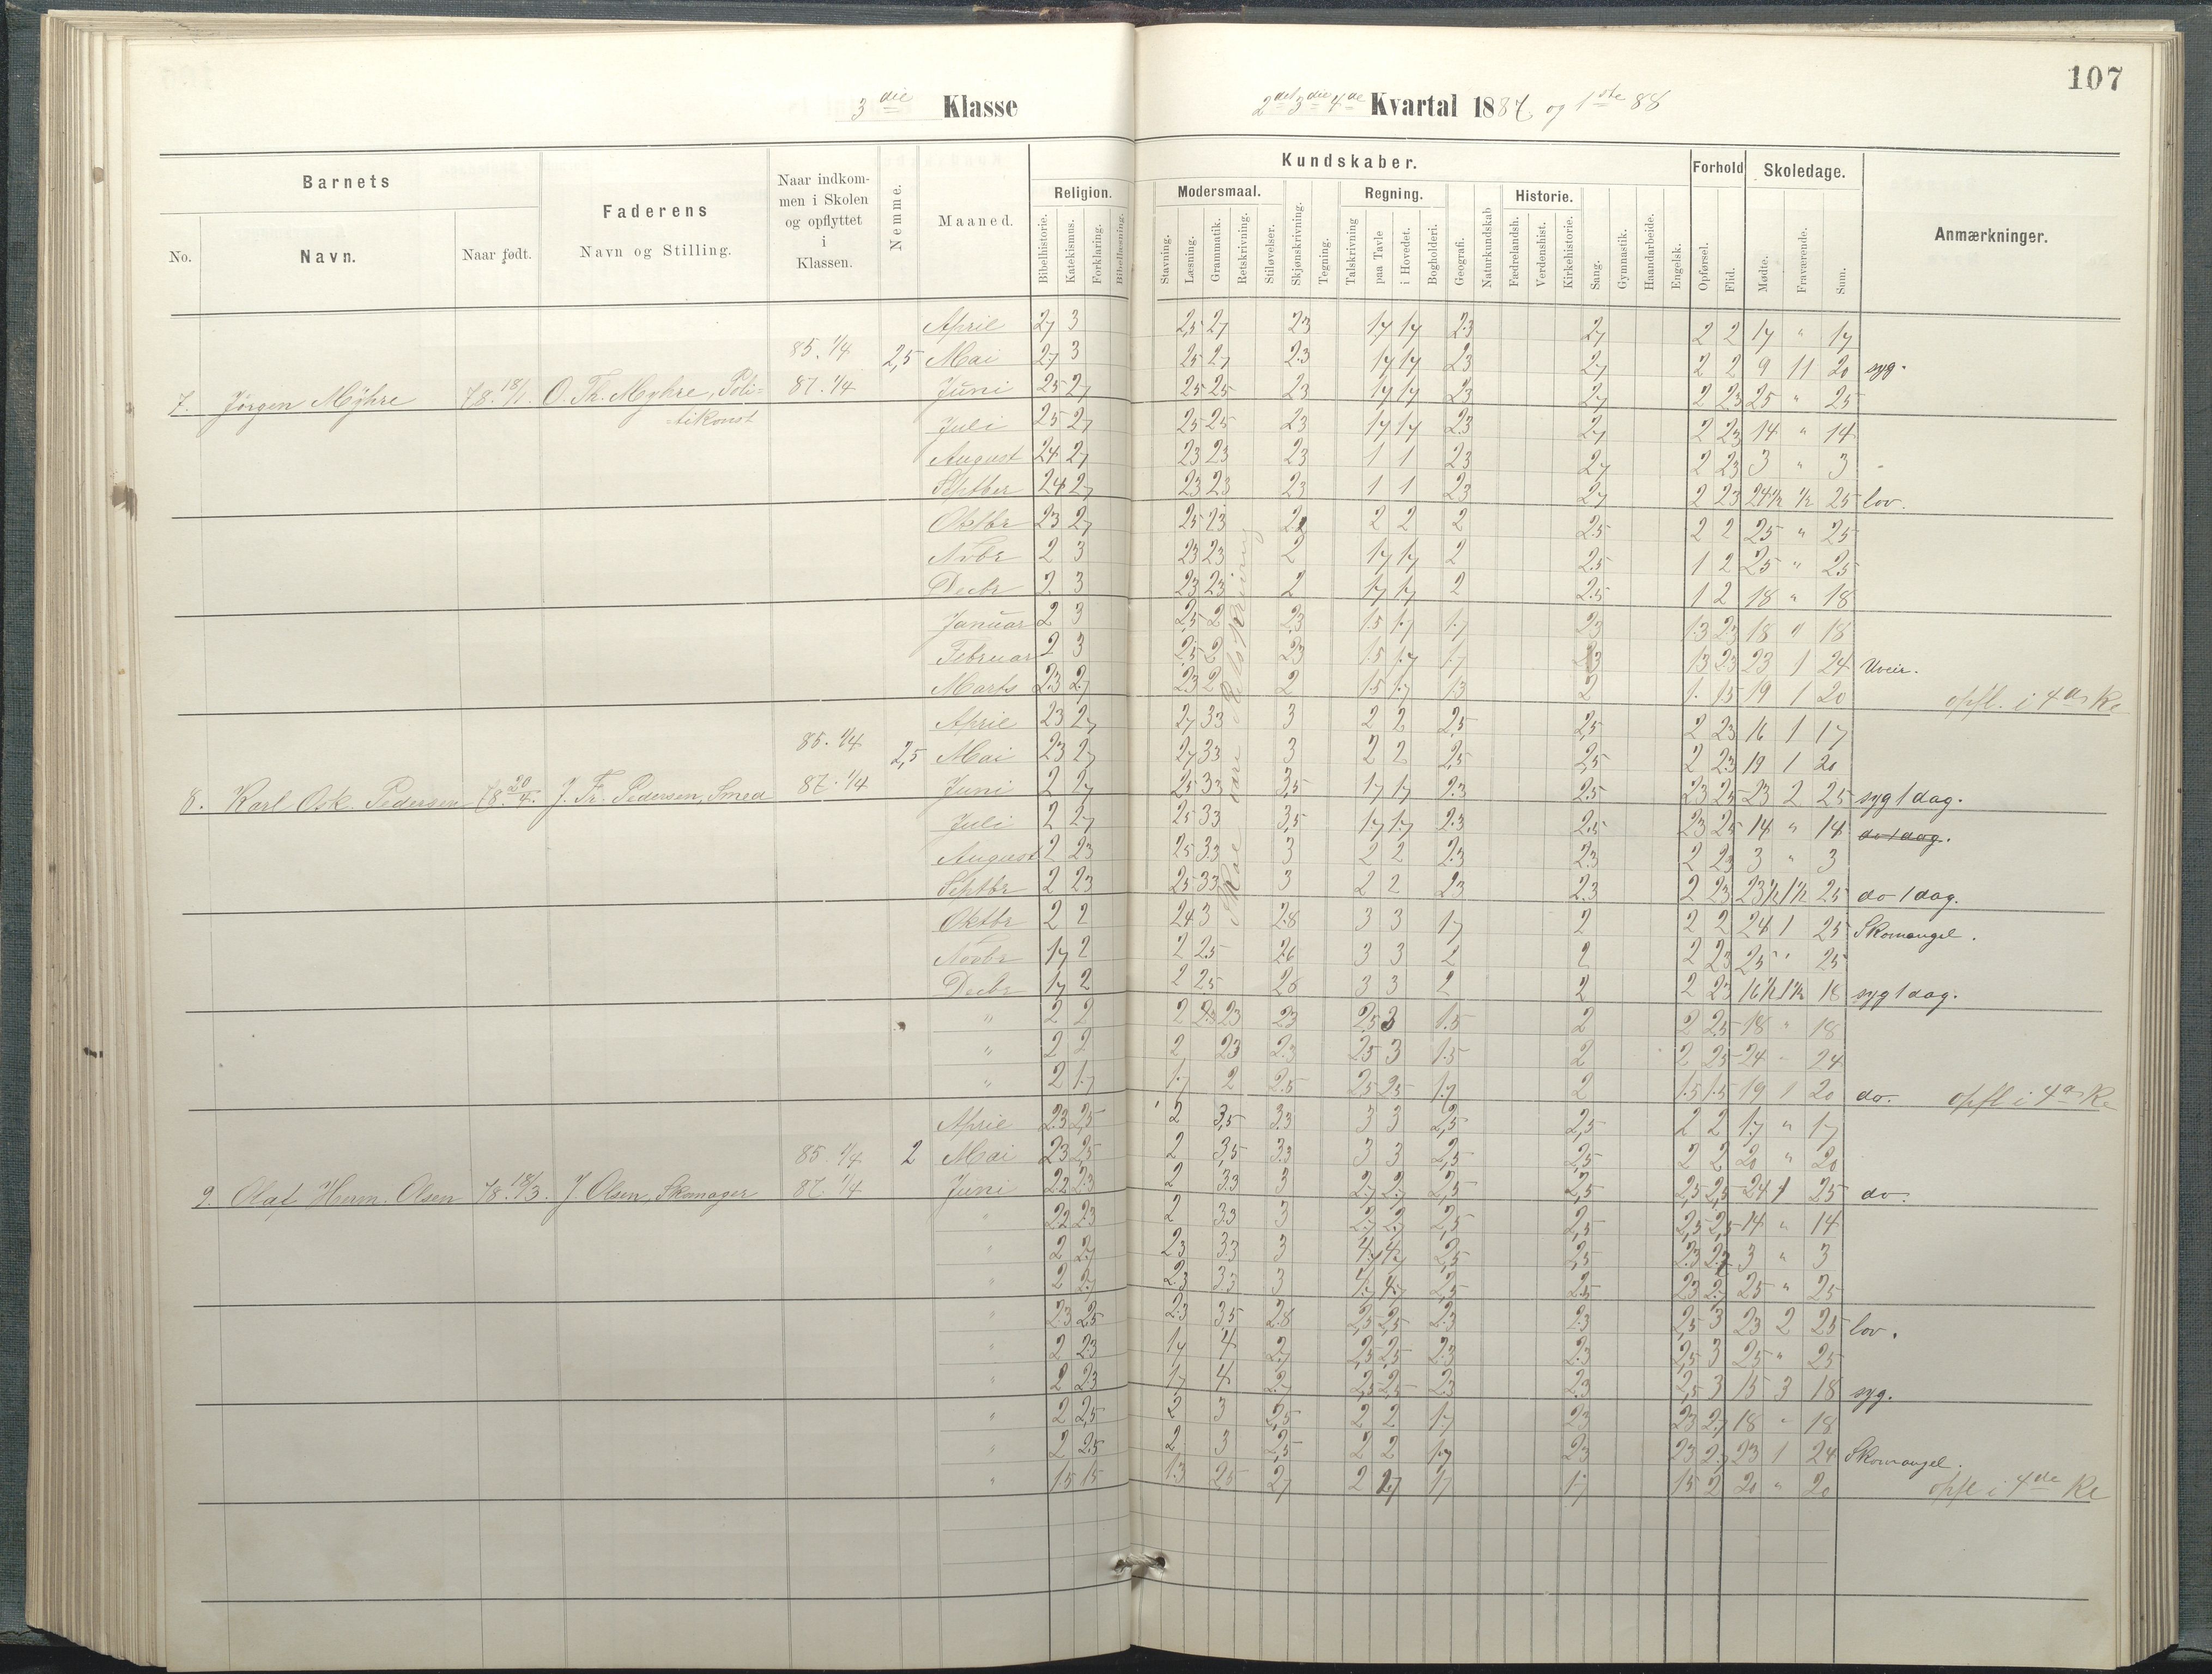 107
3die Klasse
2det 3die 4de Kvartal 1887 og 1ste 88
Barnets
Faderens
Naar indkom-
men i Skolen
og opflyttet
i
Klassen.
Nemme.
Maaned.
Kundskaber.
Forhold
Skoledage.
Anmærkninger.
No.
Navn.
Naar født.
Navn og Stilling.
Religion.
Modersmaal.
Regning.
Historie.
Bibelhistorie.
Katekismus.
Forklaring.
Bibellæsning.
Stavning.
Læsning.
Grammatik.
Retskrivning.
Stiløvelser.
Skjønskrivning.
Tegning.
Talskrivning
paa Tavle
i Hovedet.
Bogholderi.
Geografi.
Naturkundskab
Fædrelandsh.
Verdenshist.
Kirkehistorie.
Sang.
Gymnastik.
Haandarbeide.
Engelsk.
Opførsel.
Flid.
Mødte.
Fraværende.
Sum.
April 27 3 2,5 27 23 17 17 23 27 2 2 17 " 17
85. 1/4 2,5 Mai 27 3 25 27 23 17 17 23 27 2 2 9 11 20 syg.
7. Jörgen Mÿhre 78. 18/1. O. Th. Myhre, Poli- 87. 1/4 Juni 25 27 25 25 23 17 17 23 27 2 23 25 " 25
-tikonst Juli 25 27 25 25 23 17 17 23 27 2 23 14 " 14
August 24 27 23 23 23 1 1 23 27 2 23 3 " 3
Septber 24 27 23 23 23 1 1 23 27 2 23 24½ ½ 25 lov.
Oktbr 23 27 25 23 2 2 2 25 2 2 25 " 25
Nvbr 2 3 23 23 2 17 17 2 25 1 2 25 " 25
Decbr 2 3 23 23 2 17 17 2 25 1 2 18 " 18
Januar 2 3 2,5 2 23 15 17 17 23 13 23 18 " 18
Februar 2 3 25 2 23 15 17 17 23 13 23 23 1 24 Uveir.
Marts 23 27 23 2 2 15 17 13 2 1. 15 19 1 20 opfl. i 4de Kl
Skal være Retskrivning
April 23 27 27 33 3 2 2 2,5 2,5 2 23 16 1 17
85. 1/4 2,5 Mai 23 27 27 33 3 2 2 2,5 2,5 2 23 19 1 20
8. Karl Osk. Pedersen 78. 20/4. J. Fr. Pedersen, Smed 87. 1/4 Juni 2 27 25 33 3,5 17 17 23 25 23 25 23 2 25 syg 1 dag.
Juli 2 27 25 33 3,5 17 17 23 25 23 25 14 " 14 do 1 dag.
August 2 23 25 33 3 2 2 23 23 2 23 3 " 3
Septbr 2 23 25 33 3 2 2 23 23 2 23 23½ 1½ 25 do 1 dag.
Oktbr 2 2 24 3 28 3 3 17 2 2 2 24 1 25 Skomangel.
Novbr 17 2 2 25 26 3 3 2 2 2 23 25 " 25
Decbr 17 2 2 25 26 3 3 2 2 2 23 16½ 1½ 18 syg 1 dag.
" 2 2 2 23 23 23 25 3 15 2 2 25 18 " 18
" 2 2 2 23 23 25 3 15 2 2 25 24 " 24
" 2 17 17 2 25 25 25 17 2 15 15 19 1 20 do. opfl i 4de Kl
April 23 25 2 3,5 33 3 3 2,5 2,5 2 2 17 " 17
85. 1/4 2 Mai 23 25 2 3,5 33 3 3 2,5 2,5 2 2 20 " 20
9. Olaf Herm. Olsen 78. 18/3. J. Olsen, Skomager 87. 1/4 Juni 22 23 2 33 3 27 27 2,5 2,5 2,5 2,5 24 1 25 do.
" 22 23 2 33 3 27 27 2,5 2,5 2,5 2,5 14 " 14
" 2 27 23 33 3 47 47 2,5 2,5 23 27 3 " 3
" 2 27 23 33 3 47 47 2,5 25 23 27 25 " 25
" 23 25 23 35 28 2,5 2,5 23 23 2,5 3 23 2 25 lov.
" 2 23 17 4 27 2,5 2,5 23 23 2,5 3 25 " 25
" 2 23 17 4 27 25 25 23 23 2,5 3 15 3 18 syg.
" 2 25 2 3 2,5 2 2 17 23 23 27 18 " 18
" 2 25 2 3 25 2 2 17 23 23 27 23 1 24 Skomangel.
" 15 15 13 25 27 2 27 17 17 15 2 20 " 20 opfl i 4de Kl